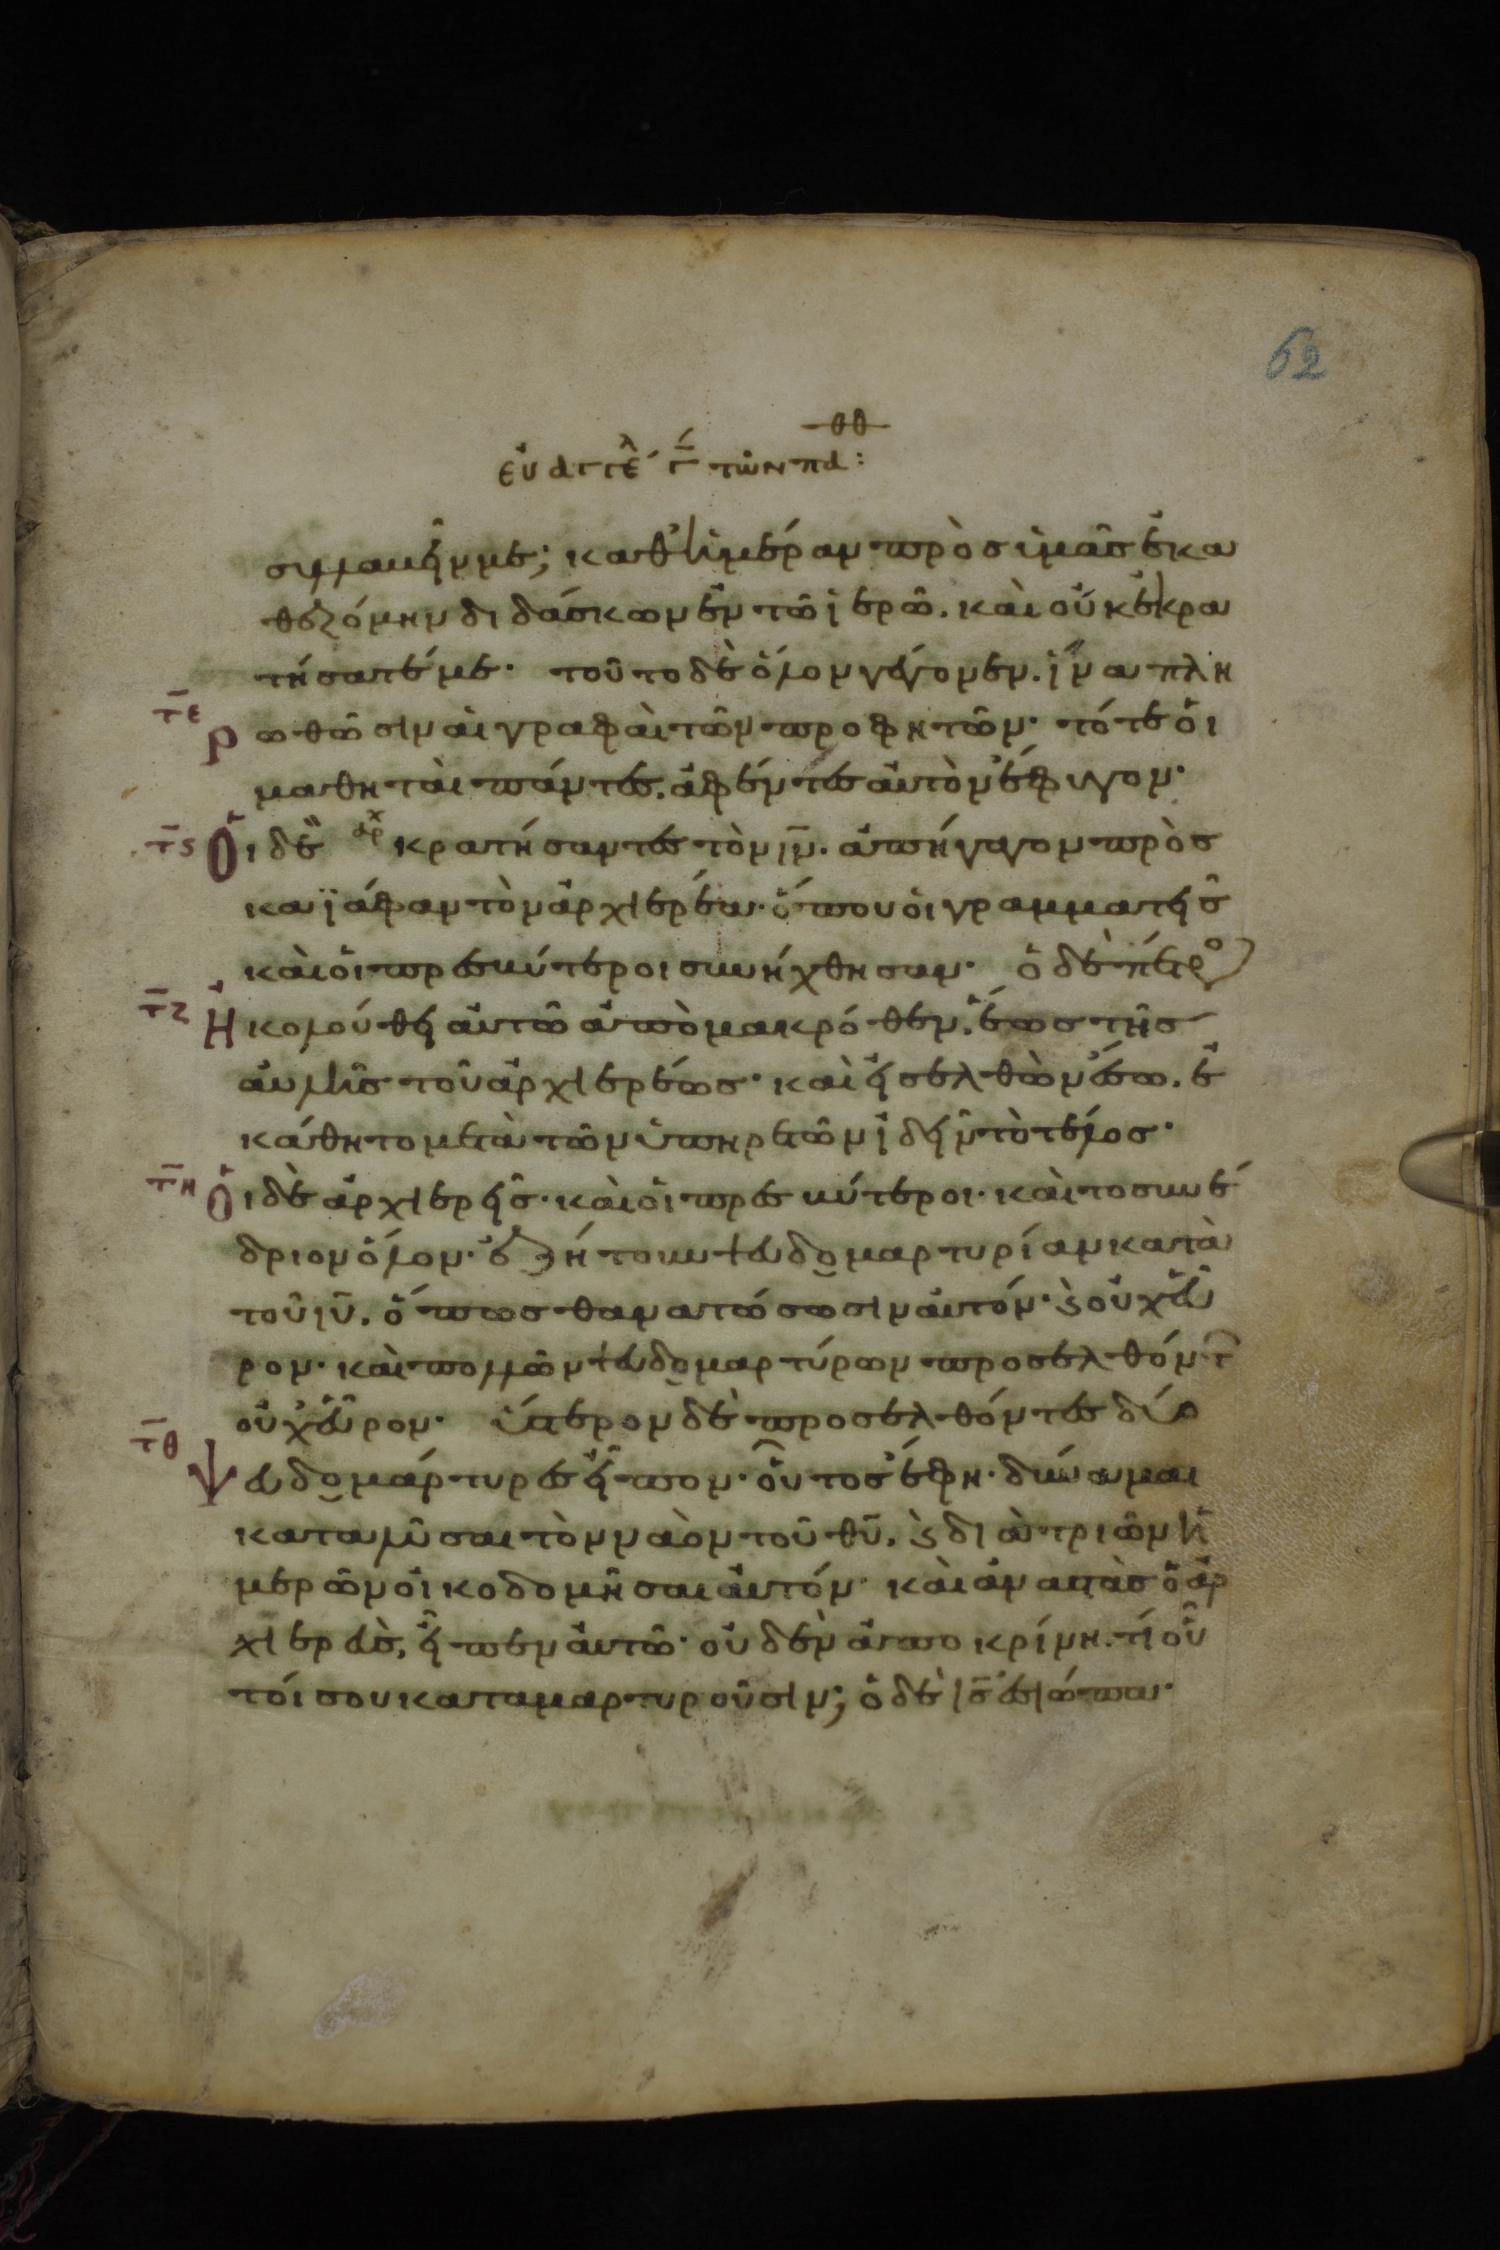 62
θθ
εὐαγγελ γ τῶν παθ:
συλλαβεῖν με; καθ ἡμέραν πρὸς ὑμᾶς ἐκα
θεζόμην διδάσκων ἐν τῶ ἱερῶ. καὶ οὐκ ἐκρα
τήσατέ με· τοῦτο δὲ ὅλον γέγονεν. ἵνα πλη
τε ρωθῶσιν αἱ γραφαὶ τῶν προφητῶν· τότε οἱ
μαθηταὶ πάντες. ἀφέντες αὐτὸν ἔφυγον·
τϛ Οἱ δὲ αρχ κρατήσαντες τὸν ιν. ἀπήγαγον πρὸς
καϊάφαν τὸν ἀρχιερέα· ὅπου οἱ γραμματεῖς
καὶ οἱ πρεσβύτεροι συνήχθησαν· ὁ δὲ πέτρο
τζ Ἠκολούθει αὐτῶ ἀπὸ μακρόθεν. ἕως τῆς
αὐλῆς τοῦ ἀρχιερέως· καὶ εἰσελθὼν ἔσω. ἐ
κάθητο μετὰ τῶν ὑπηρετῶν ἰδεῖν τὸ τέλος·
τη Οἱ δὲ ἀρχιερεῖς· καὶ οἱ πρεσβύτεροι· καὶ το συνέ
δριον ὅλον· ἐζήτουν ψευδομαρτυρίαν κατὰ
τοῦ ιυ. ὅπως θανατώσωσιν αὐτόν· ϗ οὐχ εὗ
ρον· καὶ πολλῶν ψευδομαρτύρων προσελθόντ
οὐχ εὗρον· ὕστερον δὲ προσελθόντες δύο
τθ ψευδομάρτυρες εἶπον· οὗτος ἔφη· δύναμαι
καταλῦσαι τὸν ναὸν τοῦ θυ. ϗ διὰ τριῶν ἡ
μερῶν οἰκοδομῆσαι αὐτόν· καὶ ἀναστὰς ὁ ἀρ
χιερεὺς, εἶπεν αὐτῶ· οὐδὲν ἀποκρίνη. τί οὗ
τοί σου καταμαρτυροῦσιν; ὁ δὲ ις ἐσιώπα·